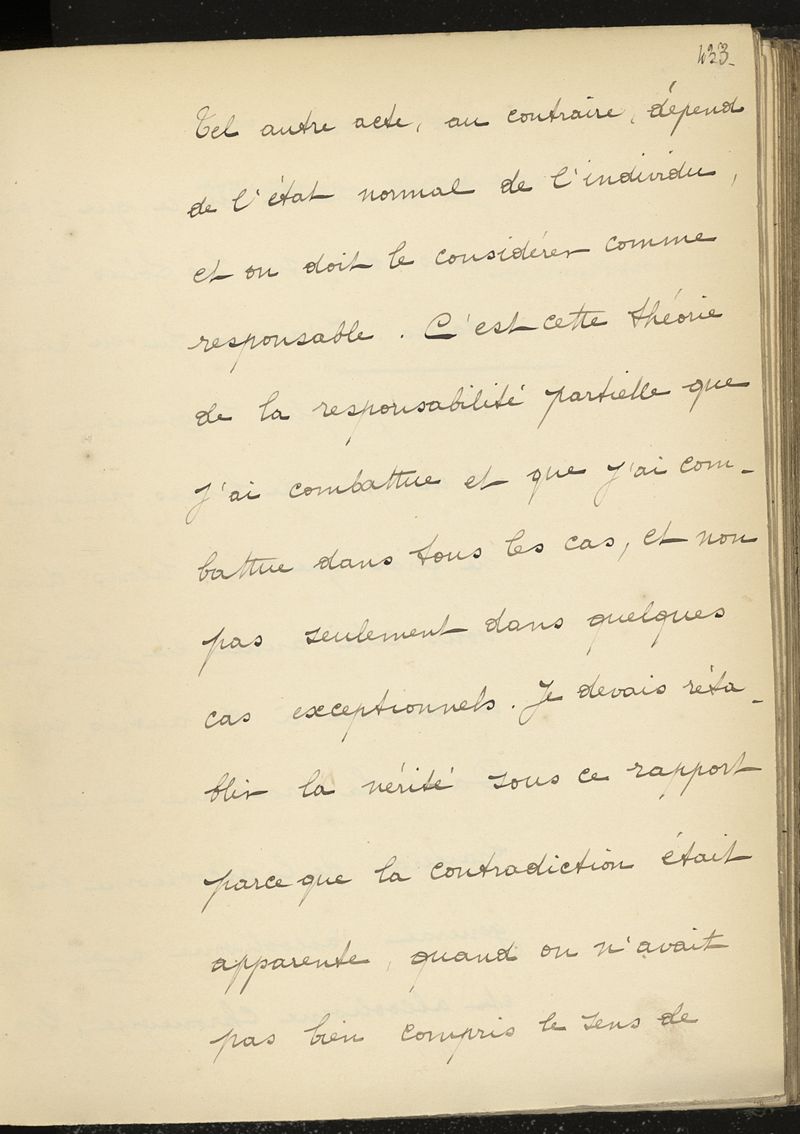 433.
Tel autre acte, au contraire, dépend
de l'état normal de l'individu,
et on doit le considérer comme
responsable. C'est cette théorie
de la responsabilité partielle que
j'ai combattue et que j'ai com-
battue dans tous les cas, et non
pas seulement dans quelques
cas exceptionnels. Je devais réta-
blir la vérité sous ce rapport
parce que la contradiction était
apparente, quand on n'avait
pas bien compris le sens de